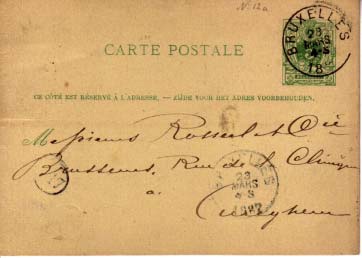 N. 12a
CARTE POSTALE
BRUXELLES
23
MARS
4-S
18
CE CÔTÉ EST RÉSERVÉ À L'ADRESSE. — ZIJDE VOOR HET ADRES VOORBEHOUDEN.
Messieurs Rossel et Cie
Brasseurs, Rue de la Clinique
à
Cureghem
23
MARS